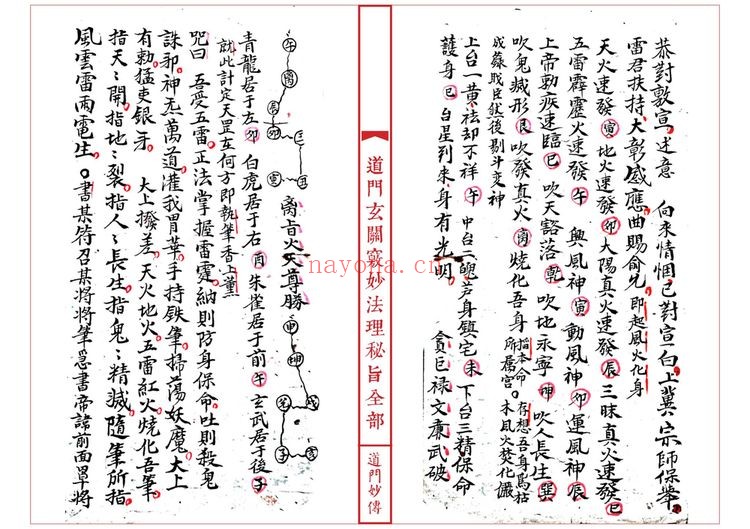 恭對敷宣述意 向來情悃已對宣白上冀宗師保舉
雷君扶持大彰感應曲賜俞允即起風火化身
天火速發寅地火速發卯太陽真火速發辰三昧真火速發巳
五雷霹靂火速發午 興風神寅動風神卯運風神辰
上帝勅疾速臨巳吹天豁落乾吹地永寧坤吹人長生巽
吹鬼滅形艮吹發真火离燒化吾身 指本命所属宮。存想吾身焦枯未風火焚化儼
成蘇戝臣然後剔斗变神
上台一黄祛却不祥午中台二 身鎮宅未下台三精保命
護身巳 白星到来身有光明 貪巨禄文廉武破
道門玄關竅妙法理秘旨全部
道門妙傳
离旨火天尊勝
青龍居于左卯白虎居于右酉朱雀居于前午玄武居于後子
就此計定天罡在何方即執筆香上薰
咒曰 吾受五雷正法掌握雷霆納則防身保命吐則殺鬼
誅邪神兵萬道灌我胃華手持鉄筆掃蕩妖魔大上
有勅猛吏銀牙 大上撥差天火地火五雷紅火燒化吾筆
指天天開指地地裂指人人長生指鬼鬼精滅隨筆所指
風雲雷雨電生。書某符召某将将筆忌書帝諱前面罩将
nayona.cn